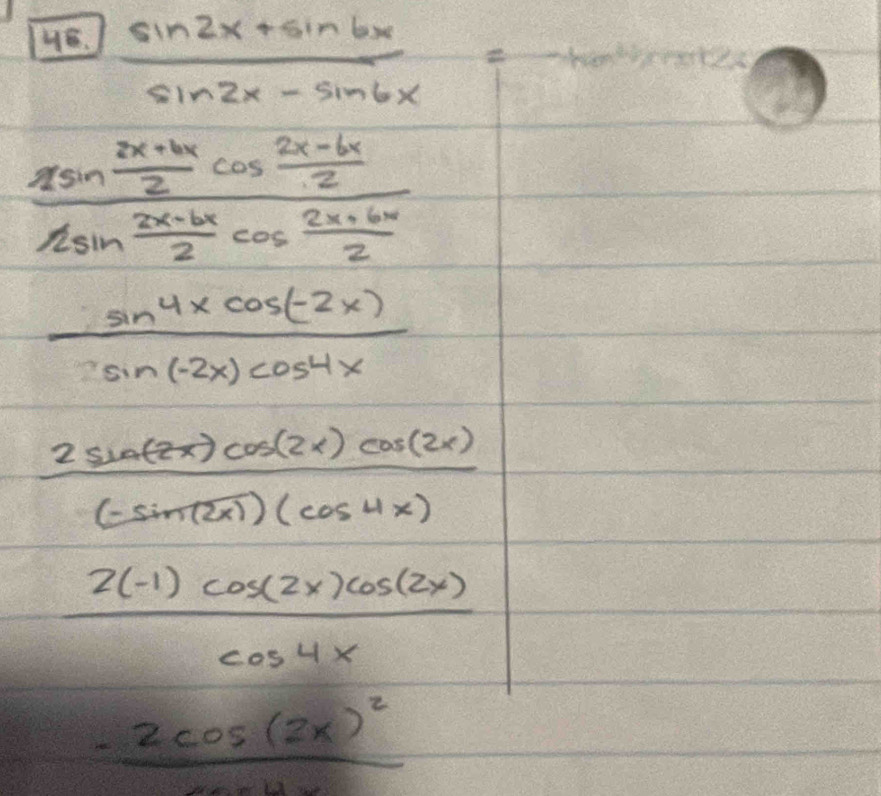 48. sin2x + sin6x
=
sin2x - sin6x
2sin 2x+6x/2 cos 2x-6x/2
2sin 2x-6x/2 cos 2x+6x/2
sin4x cos(-2x)
sin(-2x) cos4x
2 sin(2x) cos(2x) cos(2x)
(-sin(2x)) (cos4x)
2(-1) cos(2x)cos(2x)
cos4x
-2cos(2x)²
cos4x